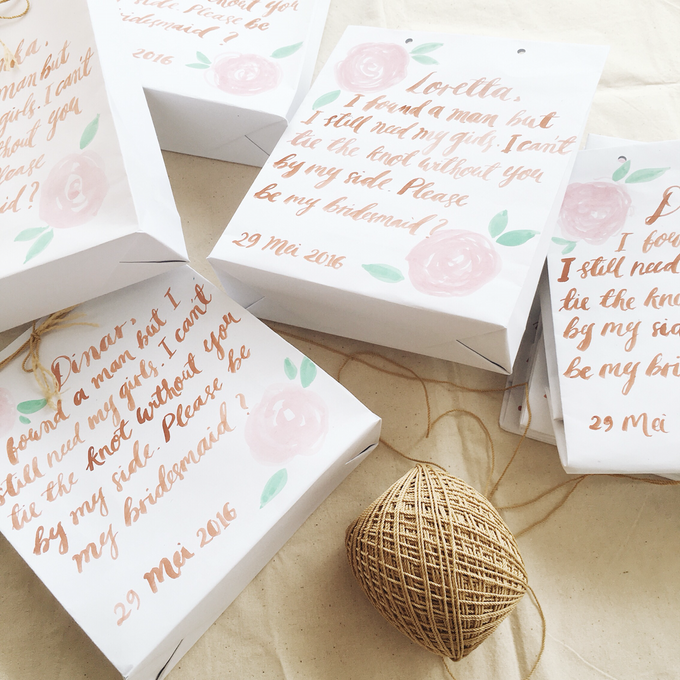 ka,
man but
girls. I can't
thout you
Please
id?
out you
side. Please be
idesmaid?
2016
Loretta,
I found a man but
I still need my girls. I can't
tie the knot without you
by my side. Please
be my bridesmaid?
29 Mei 2016
D
I fou
I still need
tie the kno
by my sid
be my bri
29 Mei
Dinar,
found a man but I
still need my girls. I can't
tie the knot without you
by my side. Please be
my bridesmaid?
29 Mei 2016